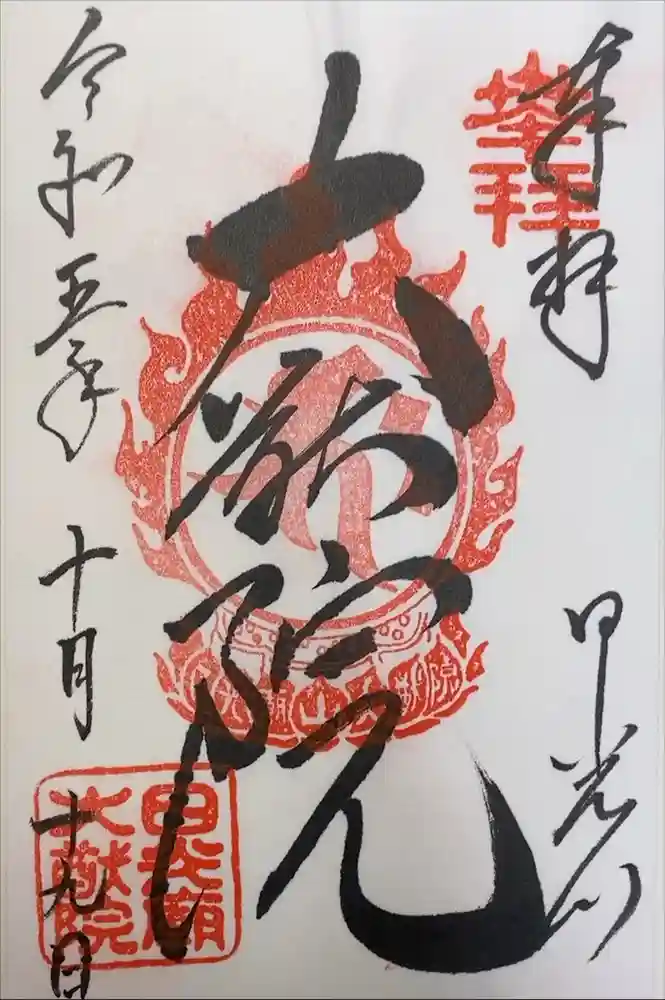 奉拝
日光山
大猷院
令和五年十月十九日
日光廟
大猷院